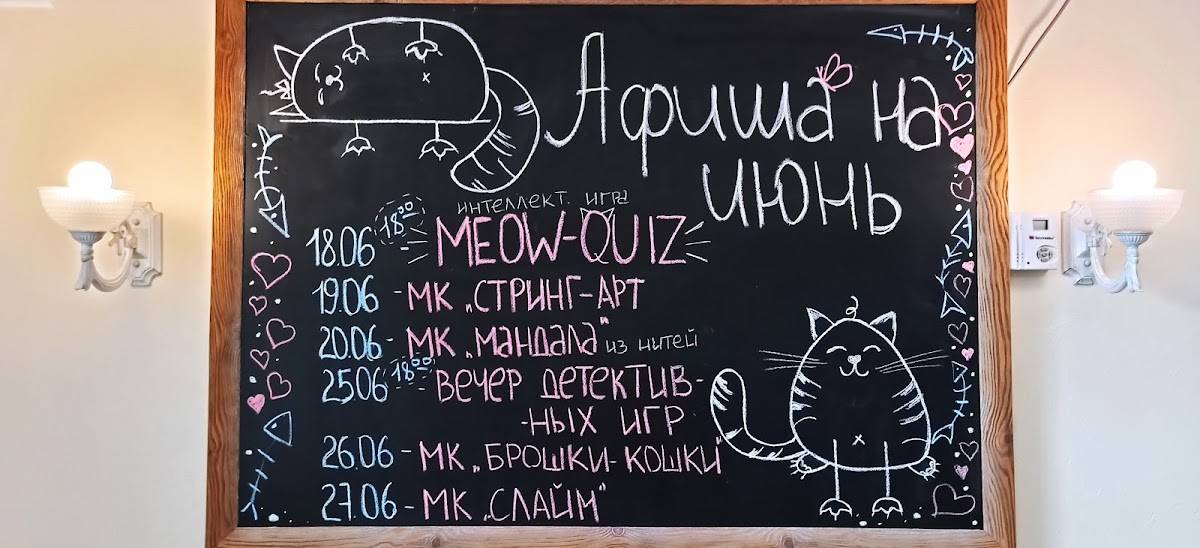 Афиша на
июнь
интеллект. игра
18.06 18⁰⁰ MEOW-QUIZ
19.06 - МК „СТРИНГ-АРТ
20.06 - МК „МАНДАЛА" из нитей
25.06 18⁰⁰ - ВЕЧЕР ДЕТЕКТИВ-
-НЫХ ИГР
26.06 - МК „БРОШКИ-КОШКИ"
27.06 - МК „СЛАЙМ"